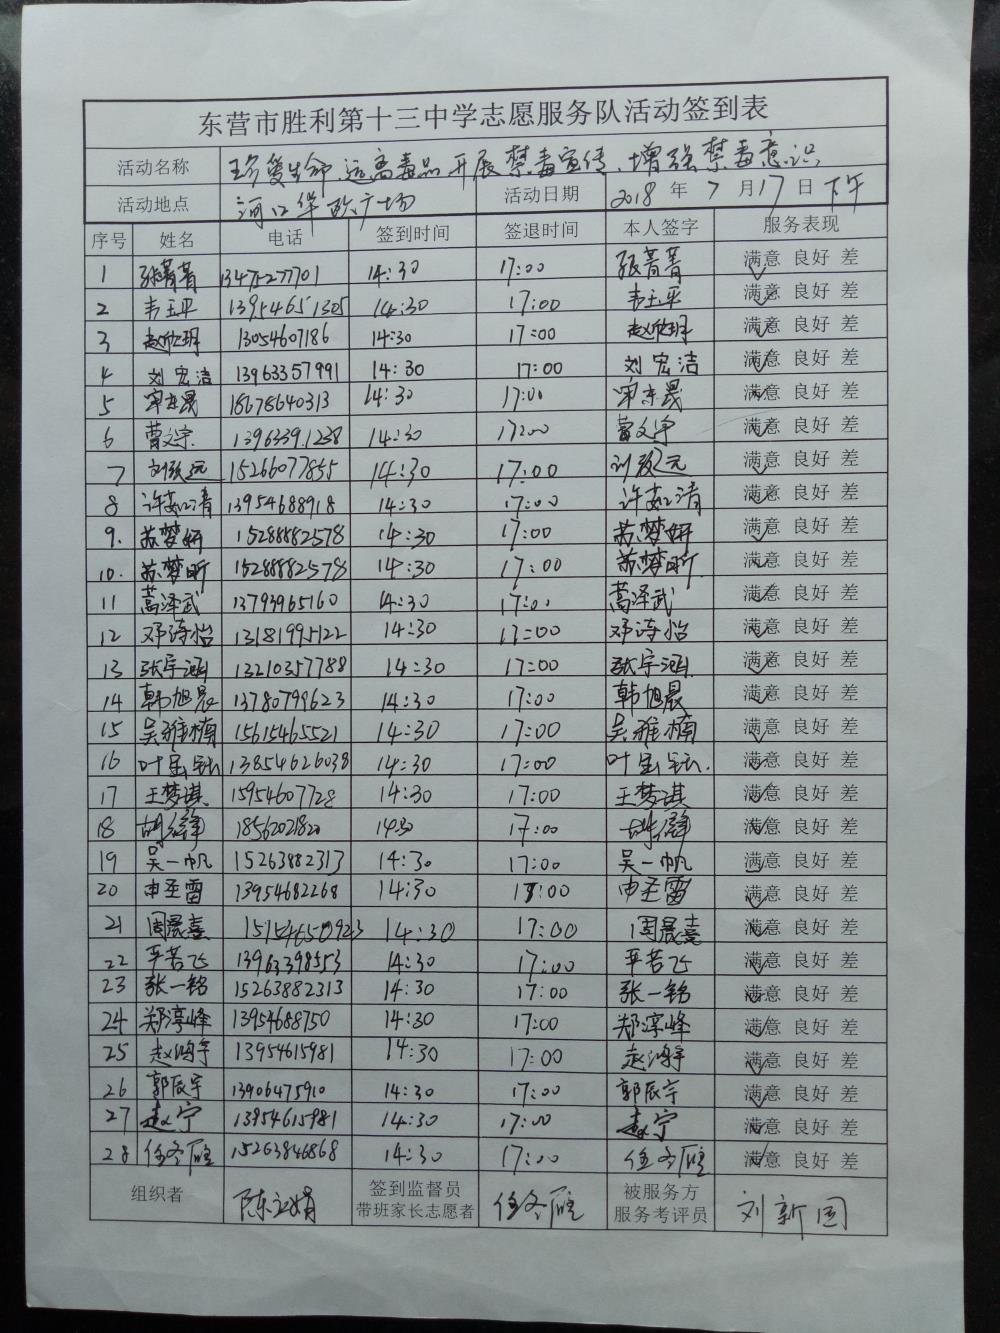 东营市胜利第十三中学志愿服务队活动签到表
活动名称 珍爱生命、远离毒品开展禁毒宣传、增强禁毒意识
活动地点 河口华政广场 活动日期 2018 年 7 月 17 日 下午
序号 姓名 电话 签到时间 签退时间 本人签字 服务表现
1 张菁菁 13475277701 14:30 17:00 张菁菁 满意 良好 差
2 韦玉平 13954651305 14:30 17:00 韦玉平 满意 良好 差
3 赵欣玥 13054607186 14:30 17:00 赵欣玥 满意 良好 差
4 刘宏洁 13963357991 14:30 17:00 刘宏洁 满意 良好 差
5 18678640313 14:30 17:00 满意 良好 差
6 曹文宇 13963391238 14:30 17:00 曹文宇 满意 良好 差
7 刘致远 15266077855 14:30 17:00 刘致元 满意 良好 差
8 许茹清 13954688918 14:30 17:00 许茹清 满意 良好 差
9. 苏梦妍 15288882578 14:30 17:00 苏梦妍 满意 良好 差
10. 苏梦昕 15288882578 14:30 17:00 苏梦昕 满意 良好 差
11 蒿泽武 13793965160 14:30 17:00 蒿泽武 满意 良好 差
12 邓诗怡 13181995122 14:30 17:00 邓诗怡 满意 良好 差
13 张宇涵 13210357788 14:30 17:00 张宇涵 满意 良好 差
14 韩旭晨 13780799623 14:30 17:00 韩旭晨 满意 良好 差
15 吴雅楠 15615465521 14:30 17:00 吴雅楠 满意 良好 差
16 叶 13854626038 14:30 17:00 叶 满意 良好 差
17 王梦琪 15954607728 14:30 17:00 王梦琪 满意 良好 差
18 胡 18562021820 14:30 17:00 胡 满意 良好 差
19 吴一帆 15263882313 14:30 17:00 吴一帆 满意 良好 差
20 申丕雷 13954682268 14:30 17:00 申丕雷 满意 良好 差
21 周晨熹 14:30 17:00 周晨熹 满意 良好 差
22 平若飞 13963398553 14:30 17:00 平若飞 满意 良好 差
23 张一铭 15263882313 14:30 17:00 张一铭 满意 良好 差
24 郑淳峰 13954688750 14:30 17:00 郑淳峰 满意 良好 差
25 赵鸿宇 13954615981 14:30 17:00 赵鸿宇 满意 良好 差
26 郭辰宇 13906475910 14:30 17:00 郭辰宇 满意 良好 差
27 赵宁 13954615981 14:30 17:00 赵宁 满意 良好 差
28 任冬雁 15263846868 14:30 17:00 任冬雁 满意 良好 差
组织者 陈 签到监督员 任冬雁 被服务方 刘新国
带班家长志愿者 服务考评员